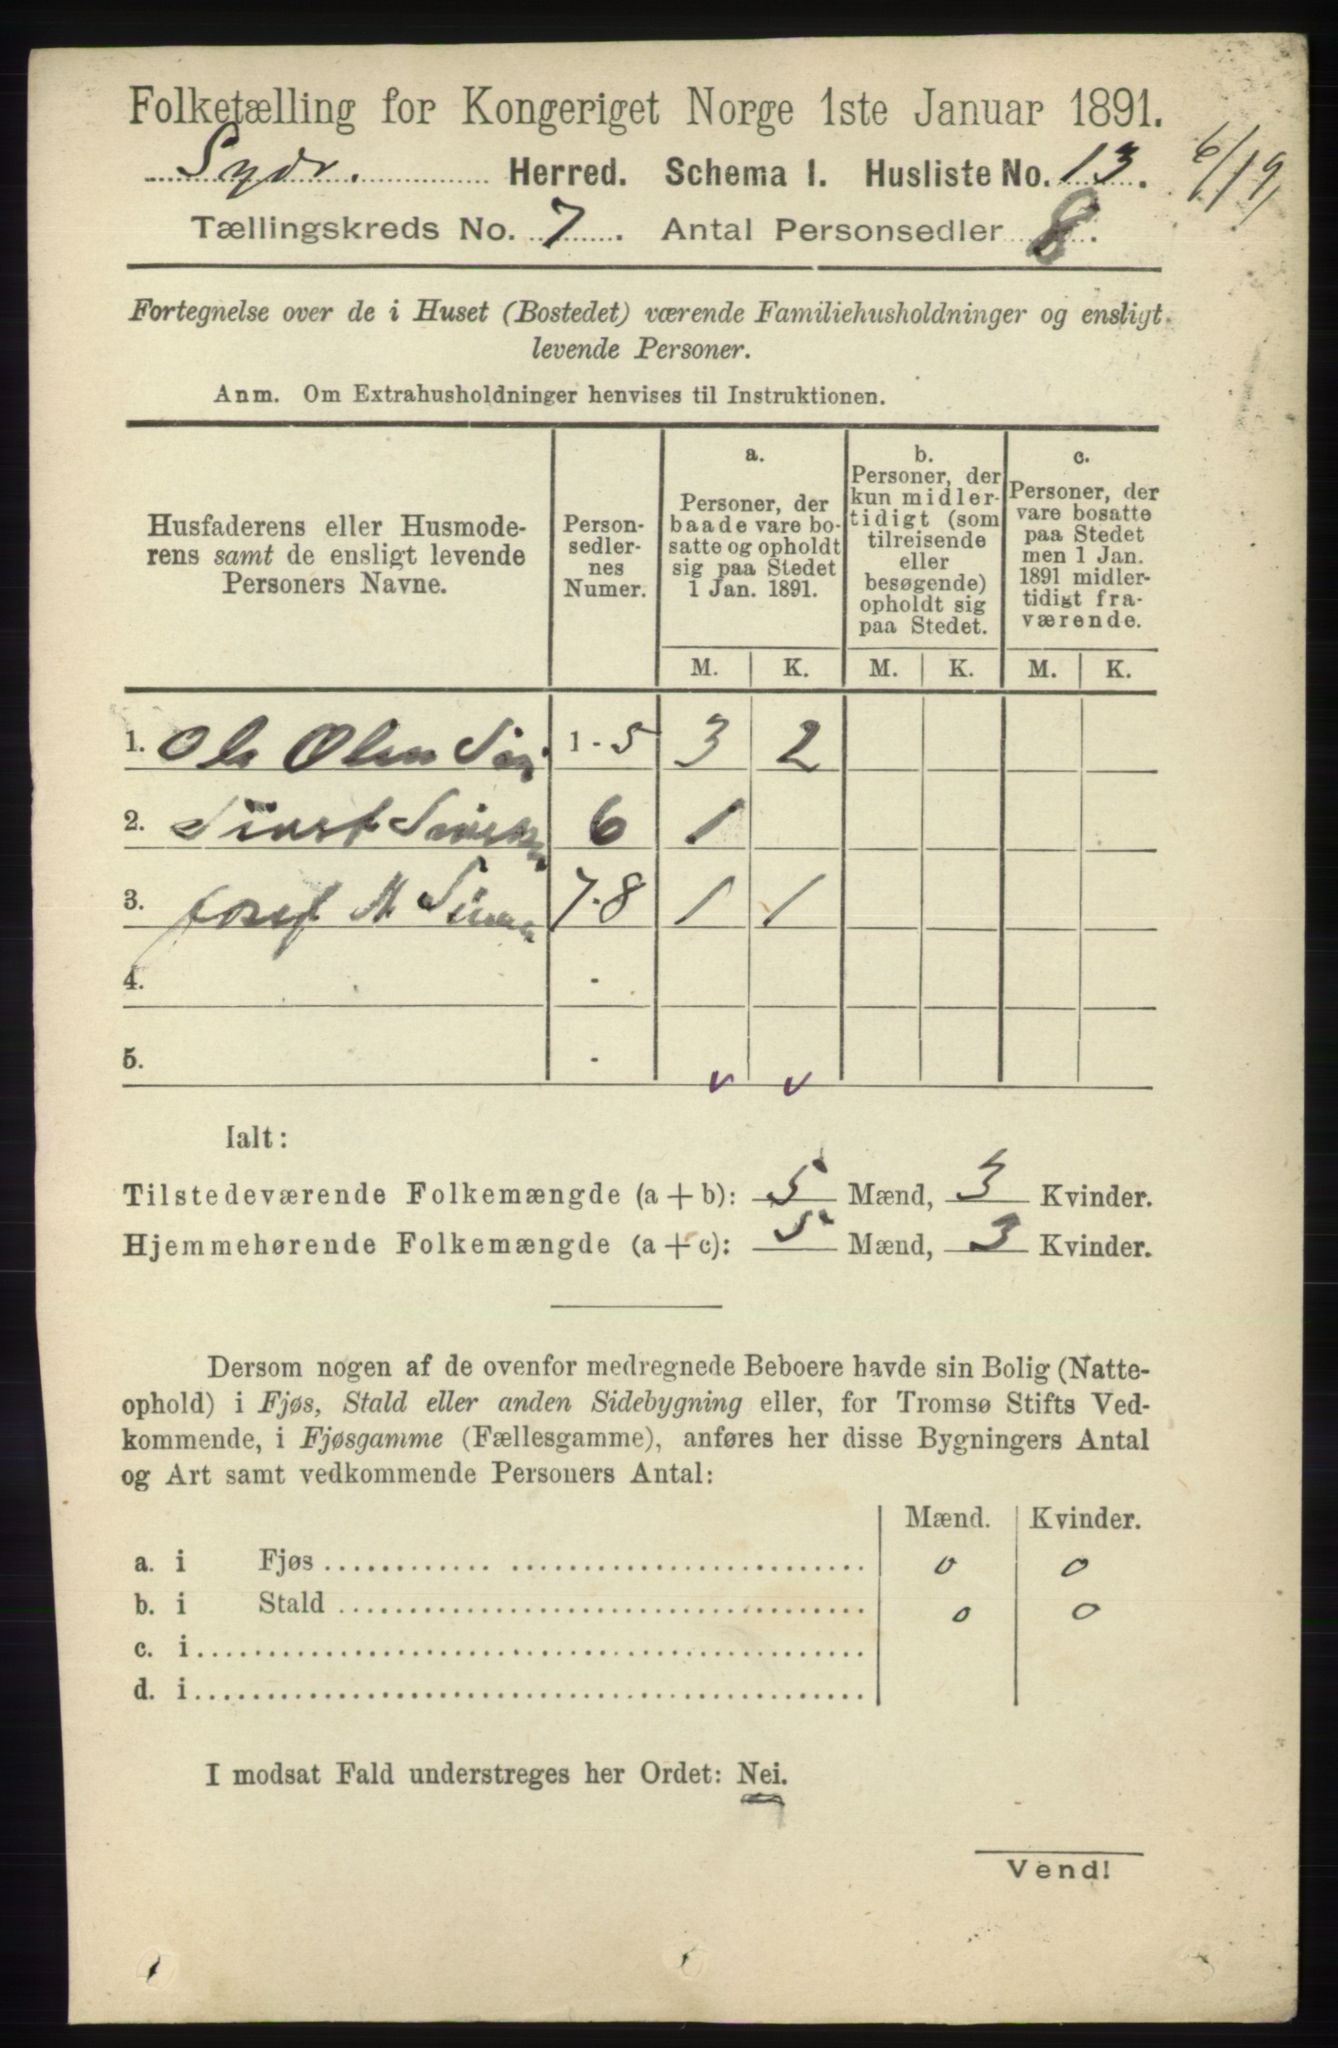 Folketælling for Kongeriget Norge 1ste Januar 1891.
Sydr. Herred. Schema I. Husliste No. 13.
6/19
Tællingskreds No. 7. Antal Personsedler 8.
Fortegnelse over de i Huset (Bostedet) værende Familiehusholdninger og ensligt
levende Personer.
Anm. Om Extrahusholdninger henvises til Instruktionen.
Husfaderens eller Husmode-
rens samt de ensligt levende
Personers Navne.
Person-
sedler-
nes
Numer.
a.
Personer, der
baade vare bo-
satte og opholdt
sig paa Stedet
1 Jan. 1891.
b.
Personer, der
kun midler-
tidigt (som
tilreisende
eller
besøgende)
opholdt sig
paa Stedet.
c.
Personer, der
vare bosatte
paa Stedet
men 1 Jan.
1891 midler-
tidigt fra-
værende.
M. K. M. K. M. K.
1. Ole Olsen 1-5 3 2
2. Sivert 6 1
3. Josef M 7-8 1 1
4. -
5. -
v v
Ialt:
Tilstedeværende Folkemængde (a+b): 5 Mænd, 3 Kvinder.
Hjemmehørende Folkemængde (a+c): 5 Mænd, 3 Kvinder.
Dersom nogen af de ovenfor medregnede Beboere havde sin Bolig (Natte-
ophold) i Fjøs, Stald eller anden Sidebygning eller, for Tromsø Stifts Ved-
kommende, i Fjøsgamme (Fællesgamme), anføres her disse Bygningers Antal
og Art samt vedkommende Personers Antal:
Mænd. Kvinder.
a. i Fjøs 0 0
b. i Stald 0 0
c. i
d. i
I modsat Fald understreges her Ordet: Nei.
Vend!